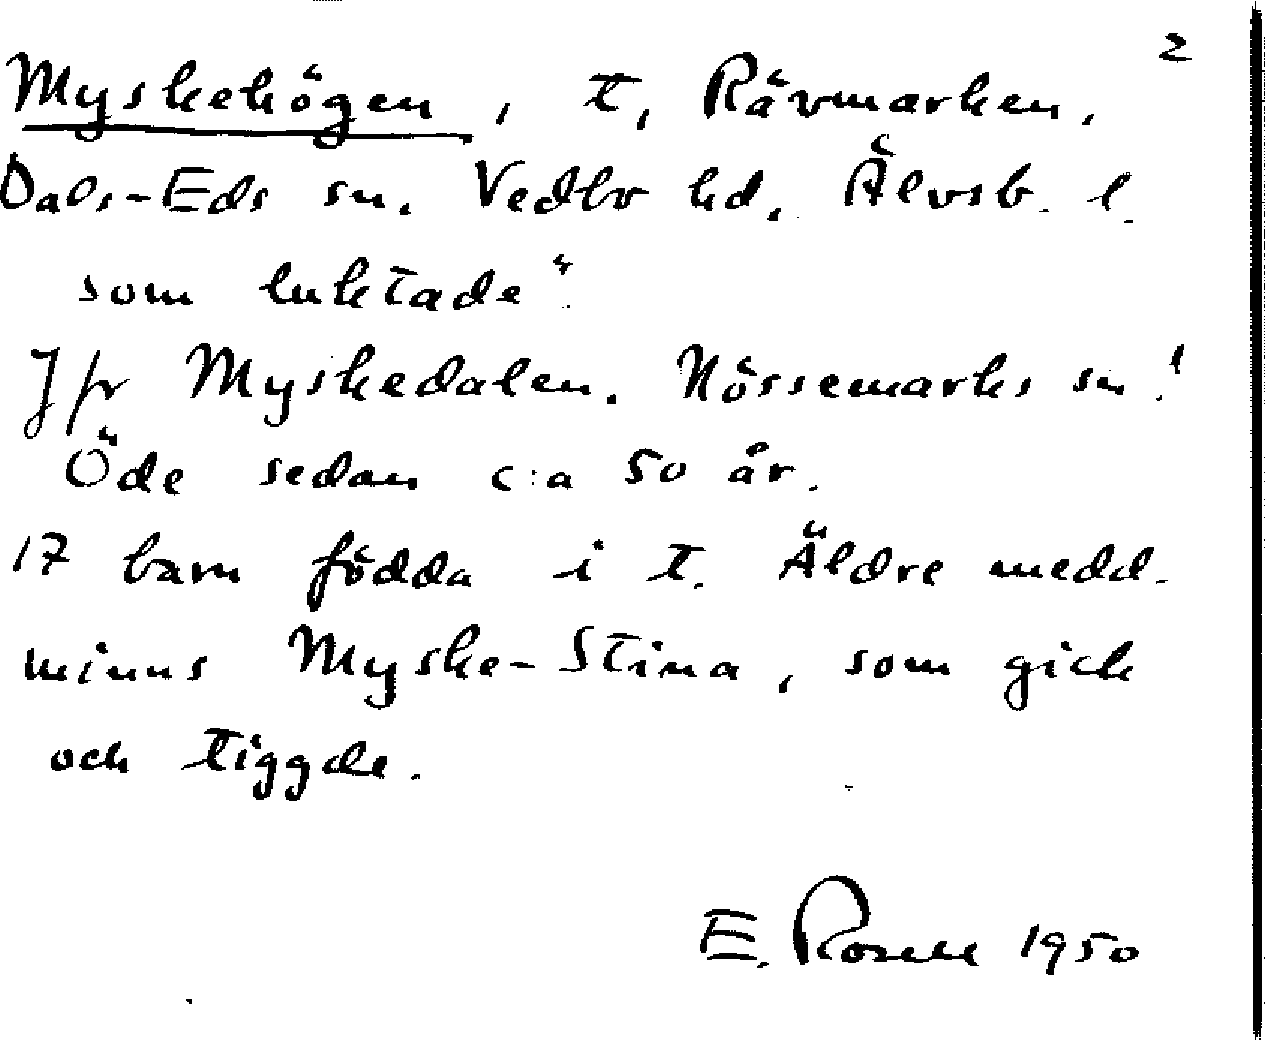 2
Myskehögen, t, Rävmarken.
Dals-Eds sn. Vedbo hd. Älvsb. l.
som luktade".
Jfr Myskedalen. Nössemarks sn!
Öde sedan c:a 50 år.
17 barn födda i t. Äldre medd.
minns Myske-Stina, som gick
och tiggde.
E. Rosell 1950